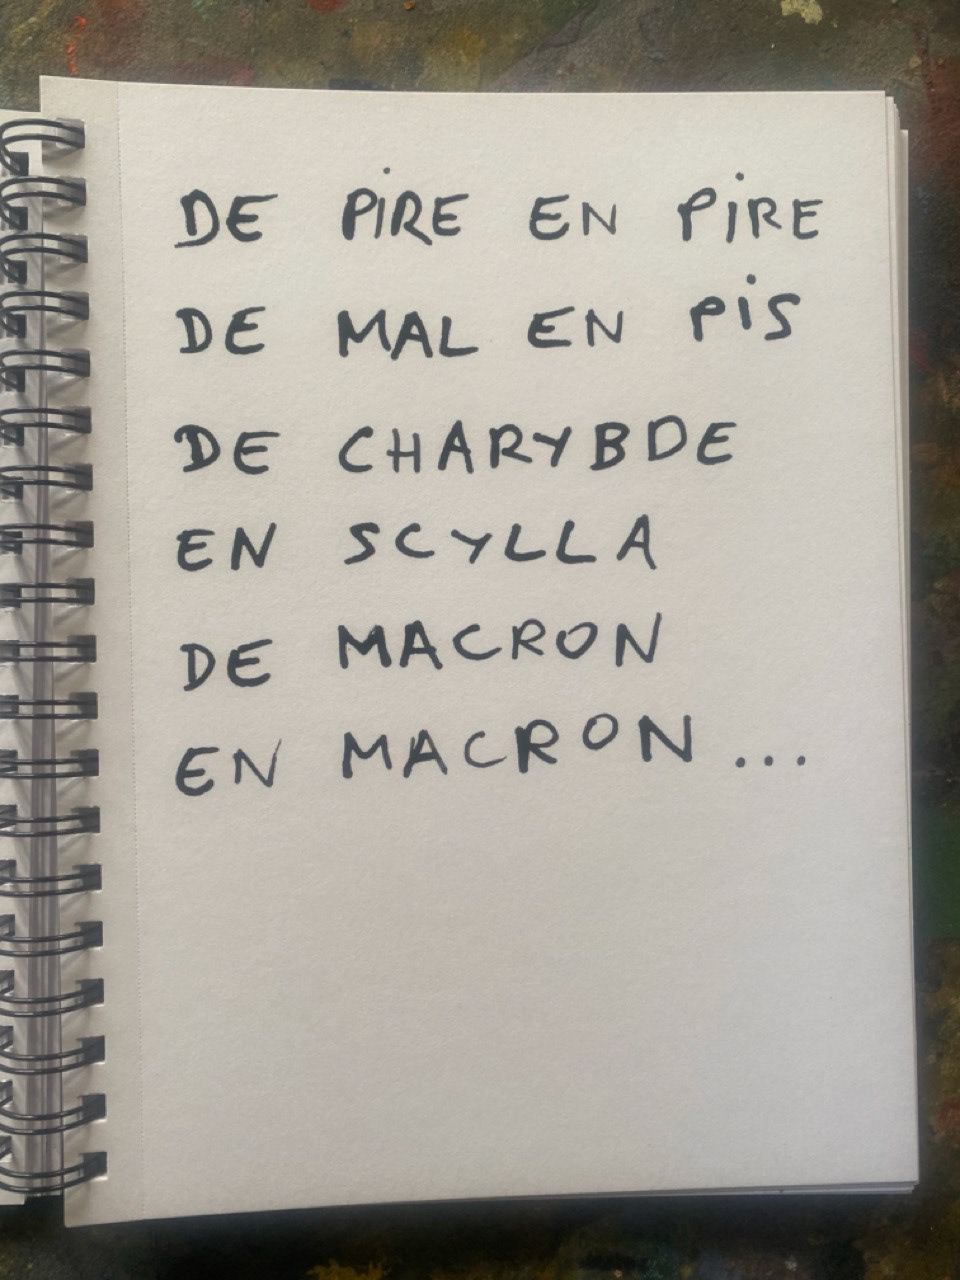 DE PiRE EN PiRE
DE MAL EN PiS
DE CHARYBDE
EN SCYLLA
DE MACRON
EN MACRON...